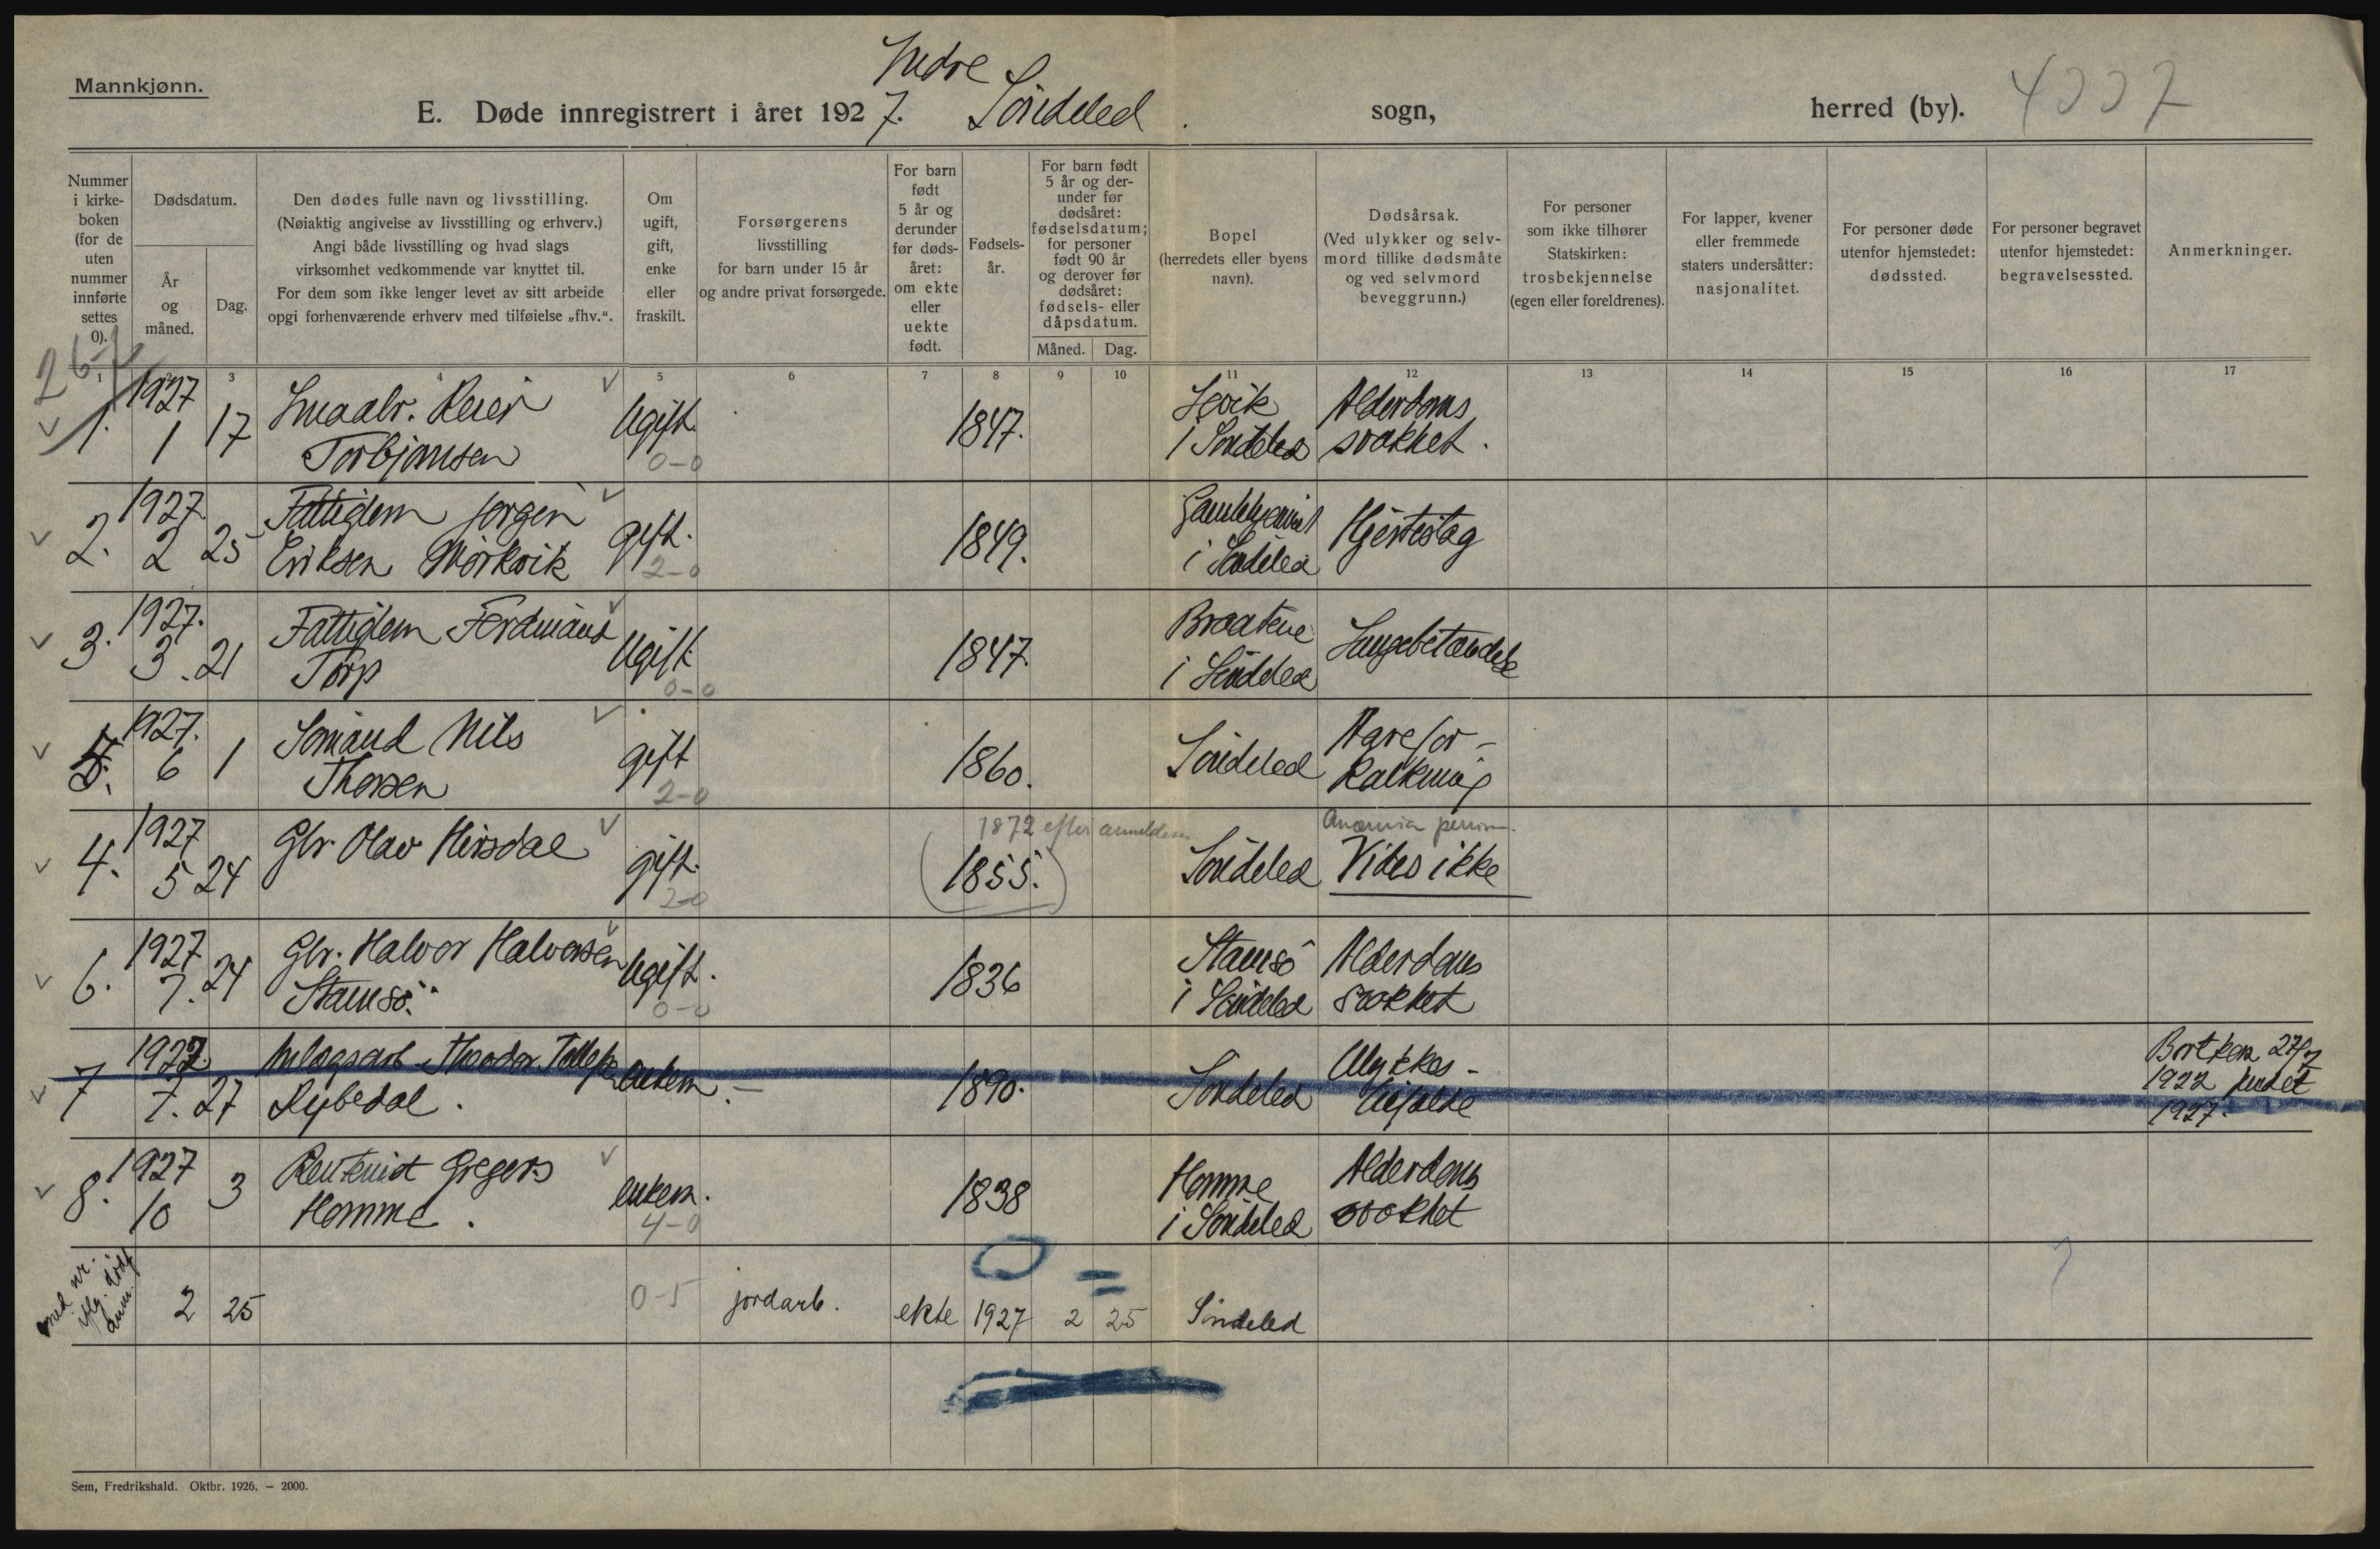 Mannkjønn.
Indre
E. Døde innregistrert i året 1927. Søndeled sogn, herred (by). 4007
Nummer i kirke-boken (for de uten nummer innførte settes 0).
Dødsdatum.
År og måned.
Dag.
Den dødes fulle navn og livsstilling.
(Nøiaktig angivelse av livsstilling og erhverv.)
Angi både livsstilling og hvad slags
virksomhet vedkommende var knyttet til.
For dem som ikke lenger levet av sitt arbeide
opgi forhenværende erhverv med tilføielse „fhv.".
Om ugift, gift, enke eller fraskilt.
Forsørgerens livsstilling for barn under 15 år og andre privat forsørgede.
For barn født 5 år og derunder før døds-året: om ekte eller uekte født.
Fødsels-år.
For barn født 5 år og der-under før dødsåret: fødselsdatum; for personer født 90 år og derover før dødsåret: fødsels- eller dåpsdatum.
Måned. Dag.
Bopel (herredets eller byens navn).
Dødsårsak. (Ved ulykker og selv-mord tillike dødsmåte og ved selvmord beveggrunn.)
For personer som ikke tilhører Statskirken: trosbekjennelse (egen eller foreldrenes).
For lapper, kvener eller fremmede staters undersåtter: nasjonalitet.
For personer døde utenfor hjemstedet: dødssted.
For personer begravet utenfor hjemstedet: begravelsessted.
Anmerkninger.
1 3 4 5 6 7 8 9 10 11 12 13 14 15 16 17
1. 1927 1 17 Smaabr. Reier Torbjørnsen Ugift. 0-0 1847. i Søndeled Alderdoms svakhet.
2. 1927 2 25 Fattiglem Jørgen Eriksen Mørkvik gift. 2-0 1849. i Søndeled Hjerteslag
3. 1927. 3. 21 Fattiglem Ferdinand Torp Ugift 0-0 1847 Braatene i Søndeled Lungebetændelse
5. 1927. 6 1 Sømand Nils Thorsen gift 2-0 1860. Søndeled Aarefor-kalkning
4. 1927 5 24 Gbr. Olav Hirsdal gift. 2-0 1872 efter anmeldelsen (1855.) Søndeled Anæmia pernic. Vides ikke
6. 1927 7. 24 Gbr. Halvor Halvorsen Stamsø. Ugift. 0-0 1836 Stamsø i Søndeled Alderdoms svakhet
7 1922. 7. 27 Anlægsarb. Theodor Tellefs. Rybedal. enkem. - 1890. Søndeled Ulykkes-tilfælde Bortkom 27/7 1922 fundet 1927.
8. 1927 10 3 Gregers Homme. enkem. 4-0 1838 Homme i Søndeled Alderdoms svakhet
med nr. iflg. dødf. anm. 2 25 0-5 jordarb. ekte 1927 2 25 Søndeled
Sem, Fredrikshald. Oktbr. 1926. — 2000.